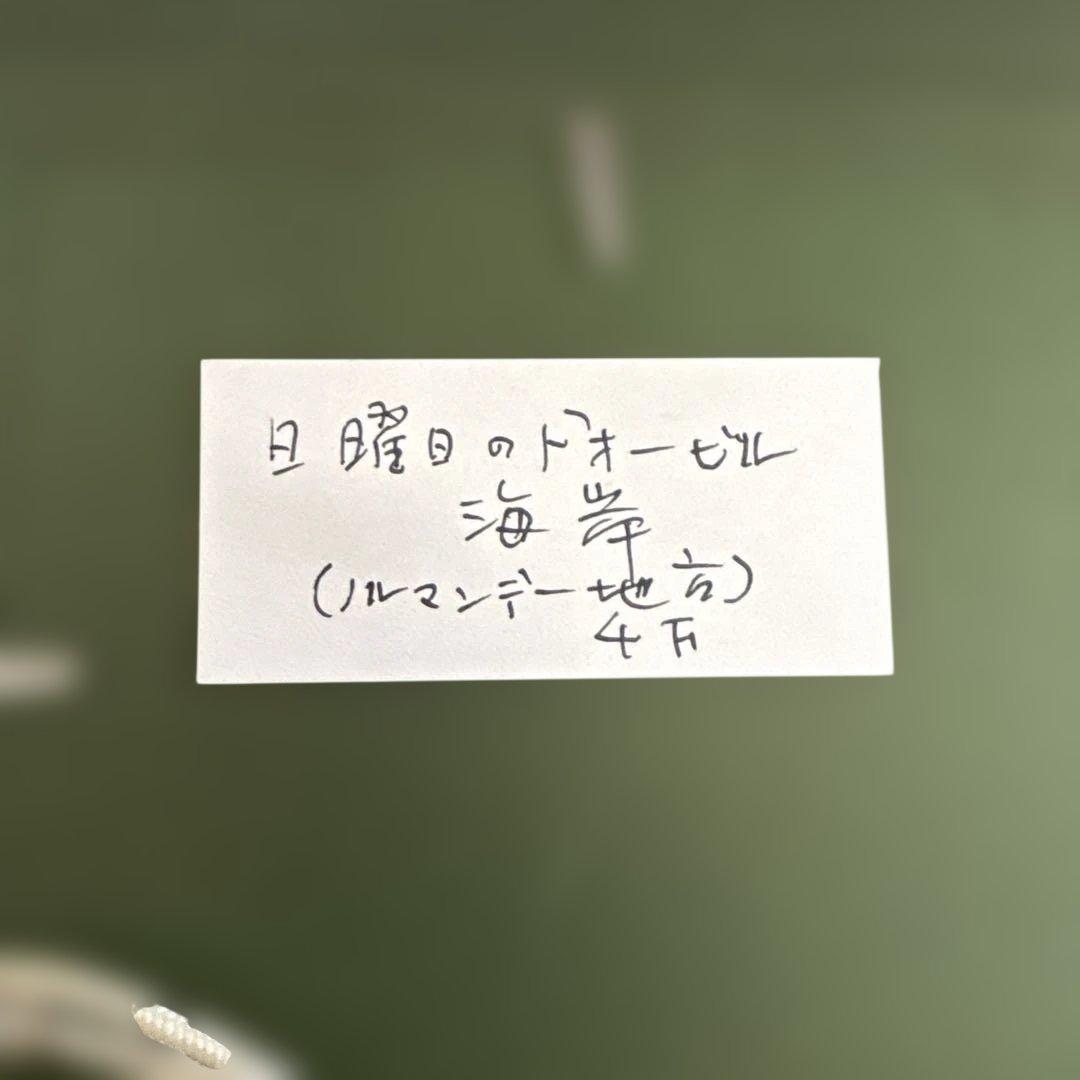 日曜日のドオービル
海岸
(ノルマンデー地方)
4万